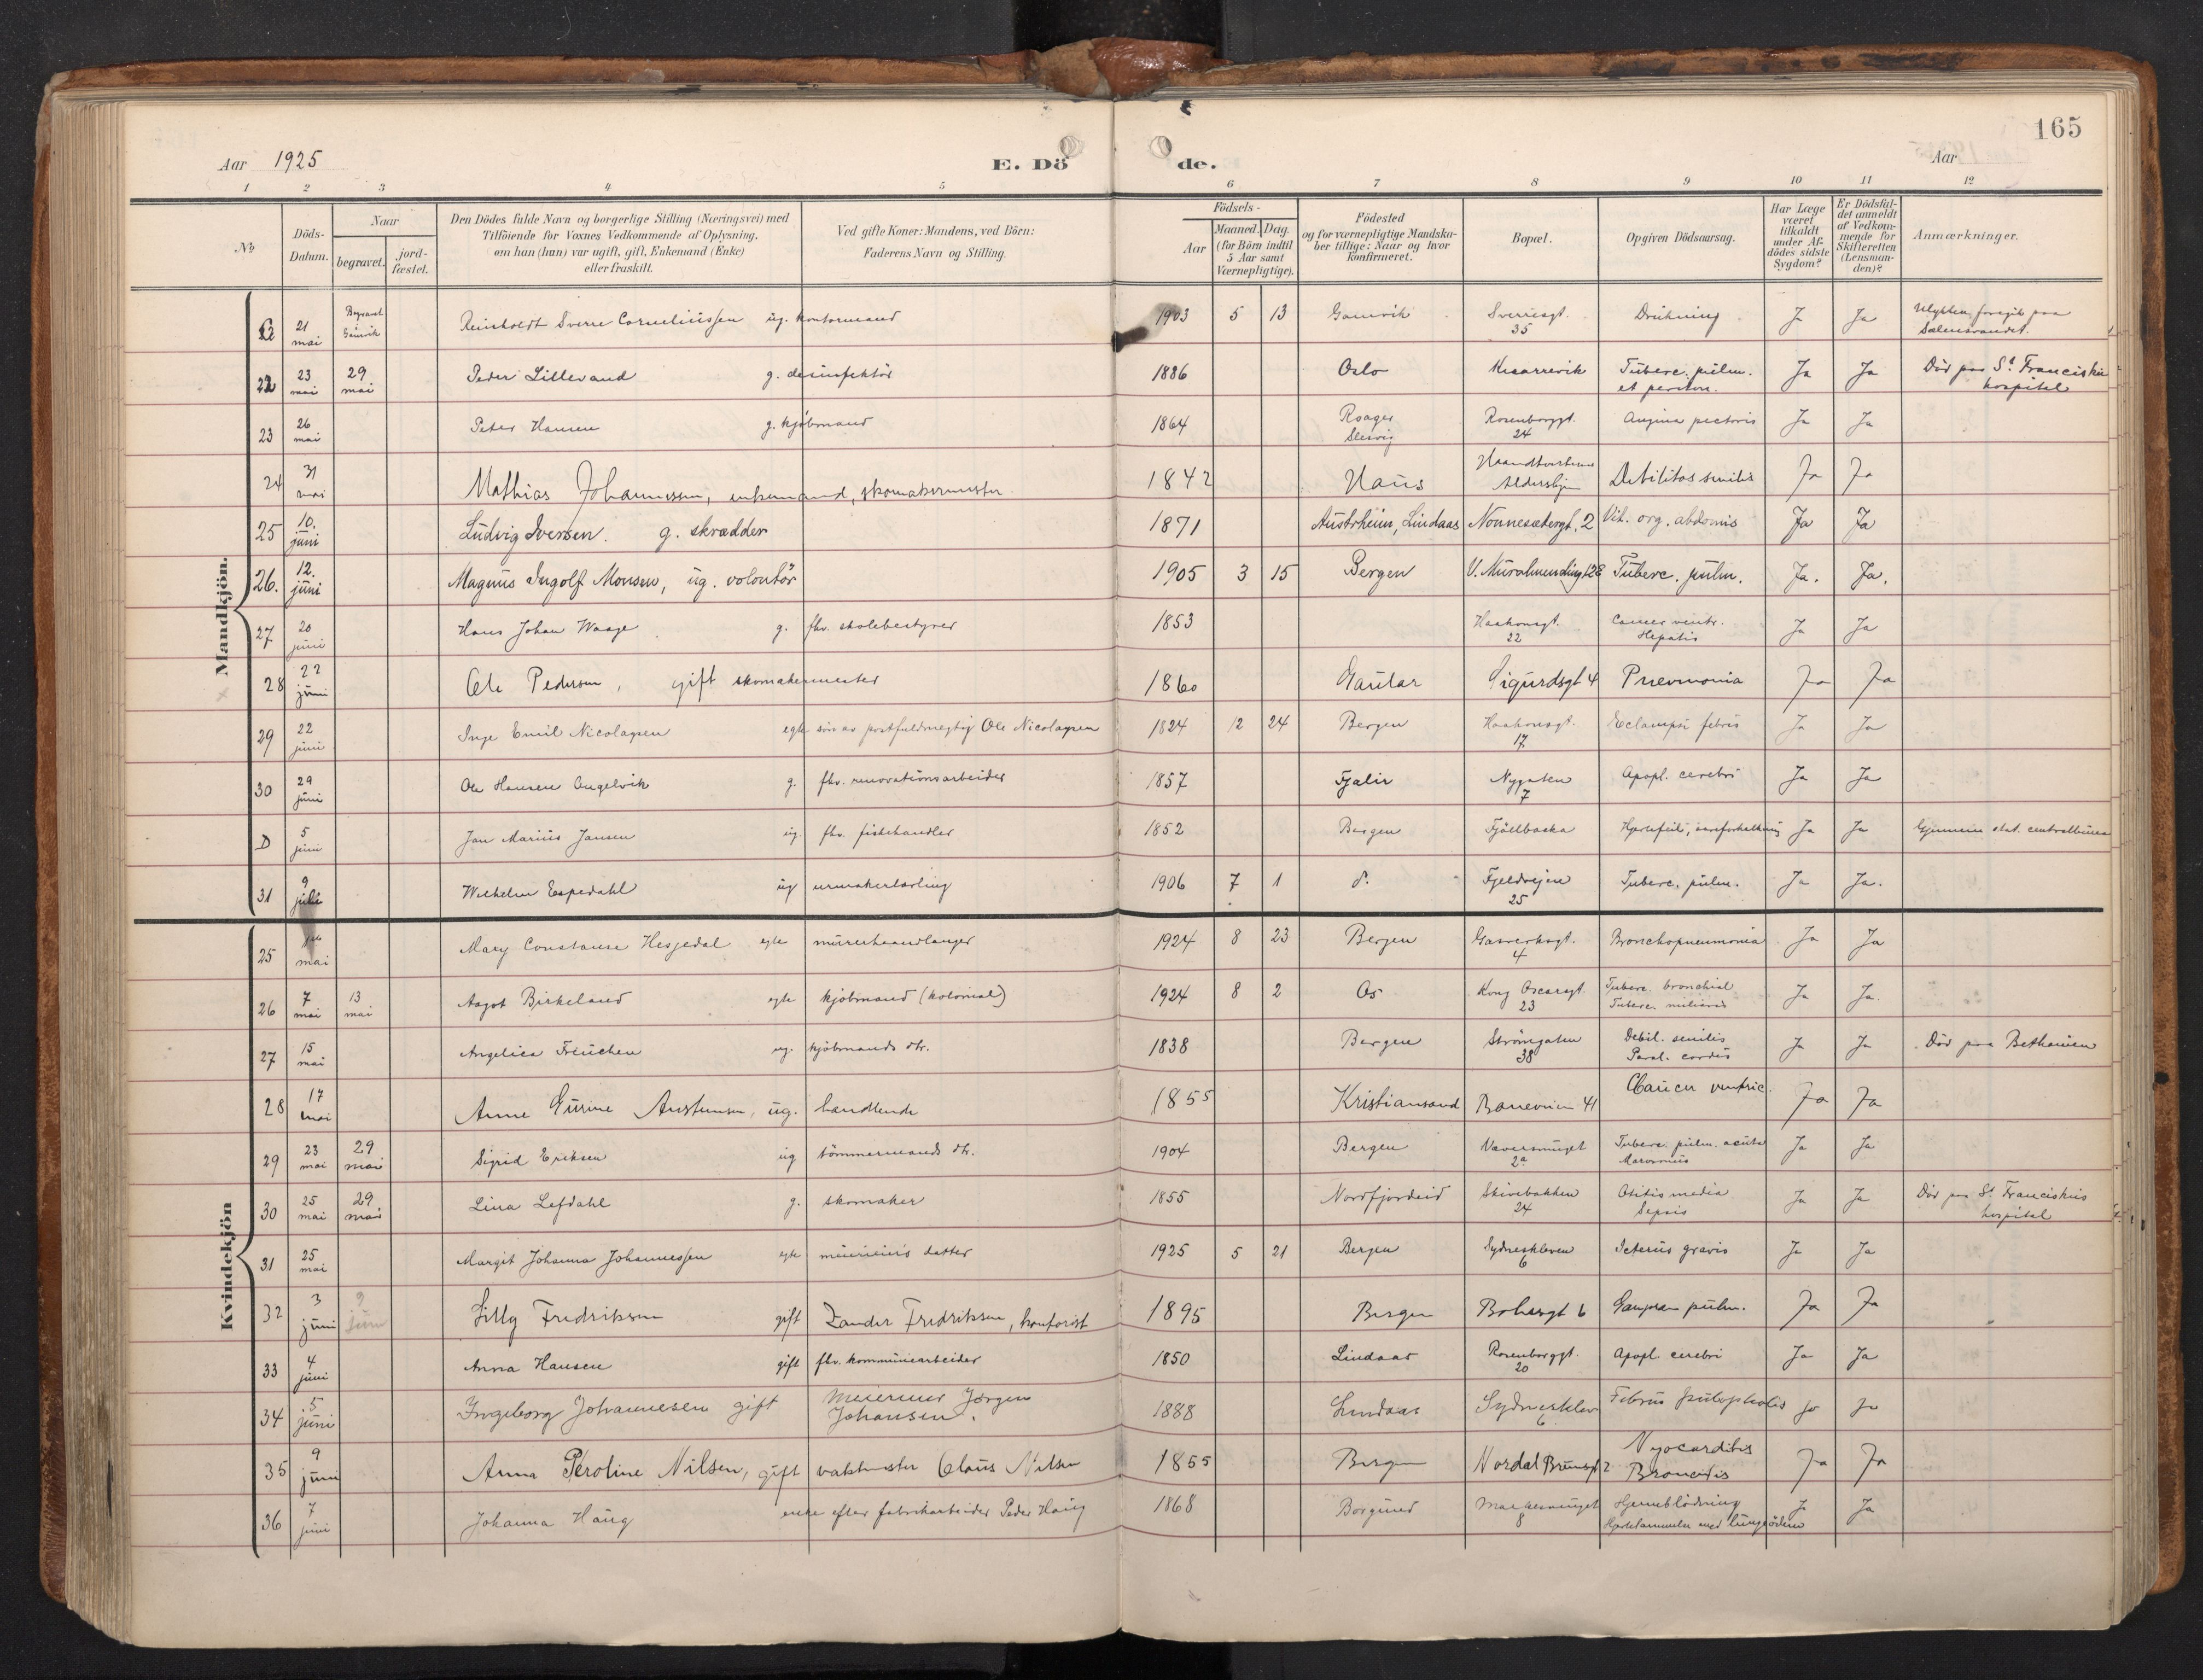 165
Aar 1925
E. Dö de.
Aar
1 2 3 4 5 6 7 8 9 10 11 12
No
Döds-Datum.
Naar begravet. jordfæstet.
Den Dödes fulde Navn og borgerlige Stilling (Næringsvei) med Tilföiende for Voxnes Vedkommende af Oplysning, om han (hun) var ugift, gift, Enkemand (Enke) eller fraskilt.
Ved gifte Koner: Mandens, ved Börn: Faderens Navn og Stilling.
Födsels- Aar Maaned. Dag. (for Börn indtil 5 Aar samt Værnepligtige).
Födested og for værnepligtige Mandskaber tillige: Naar og hvor Konfirmeret.
Bopæl.
Opgiven Dödsaarsag.
Har Læge været tilkaldt under Afdödes sidste Sygdom?
Er Dödsfaldet anmeldt af Vedkommende for Skifteretten (Lensmanden)?
Anmærkninger.
Mandkjön.
21 mai Begravet Gamvik Reinholdt Sverre Corneliussen ug. kontormand 1903 5 13 Gamvik Sverresgt. 35 Drukning Ja Ja Ulykken foregik paa
22 23 mai 29 mai Peder Lillevand g. desinfektör 1886 Oslo Tuberc. pulm. et periton. Ja Ja Död paa St Franciskus hospital
23 26 mai Peter Hansen g. kjöbmand 1864 Slesvig Rosenborggt. 24 Angina pectoris Ja Ja
24 31 mai Mathias Johannessen, enkemand, skomakermester 1842 Haus Debilitas senilis Ja Ja
25 10. juni Ludvig Iversen. g. skrædder 1871 Austrheim, Lindaas Nonnesætergt. 2 Vit. org. abdomis Ja Ja
26. 12. juni Magnus Ingolf Monsen, ug. volontör 1905 3 15 Bergen V. Muralmending Tuberc. pulm. Ja. Ja.
27 20 juni Hans Johan Waage g. fhv. skolebestyrer 1853 Haakonsgt. 22 Cancer ventr. Hepatis Ja Ja
28 22 juni Ole Pedersen, gift skomakermester 1860 Gaular Sigurdsgt 4 Pnevmonia Ja Ja
29 22 juni Inge Emil Nicolaysen egte sön av postfuldmegtig Ole Nicolaysen 1824 12 24 Bergen Haakonsgt. 17 Eclampsi febris Ja Ja
30 29 juni Ole Hansen Engelvik g. fhv. renovationsarbeider 1857 Fjaler Nygaten 7 Apopl. cerebri Ja Ja
D 5 juni Jan Marius Jansen ug. fhv. fiskehandler 1852 Bergen Fjällbacka Hjertefeil, aareforkalkning Ja Ja Gjennem stat. centralbureau
31 9 juli Wilhelm Espedahl ug urmakerlærling 1906 7 1 d. Fjeldveien 25 Tuberc. pulm. Ja Ja.
Kvindekjön
25 mai Mary Constanse Hesjedal egte murerhaandlanger 1924 8 23 Bergen Gasverksgt. 4 Bronchopneumonia Ja Ja
26 7 mai 13 mai Aagot Birkeland egte kjöbmand (kolonial) 1924 8 2 Os Kong Oscarsgt. 23 Tuberc. bronchial Tuberc. miliaris Ja Ja.
27 15 mai Angelica Freuchen ug. kjöbmands dtr. 1838 Bergen Strömgaten 38 Debil. senilis Paral. cordis Ja Ja Död paa Bethanien
28 17 mai Anne Gurine ug. handlende 1855 Kristiansand 41 Cancer ventric. Ja Ja
29 23 mai 29 mai Sigrid Eriksen ug tömmermands dtr. 1904 Bergen Væversmuget 2a Tuberc. pulm. acuta Ja Ja
30 25 mai 29 mai Lina Lefdahl g. skomaker 1855 Nordfjordeid Skivebakken 24 Otitis media Sepsis Ja Ja Död paa St Franciskus hospital
31 25 mai Margit Johanna Johannessen egte datter 1925 5 21 Bergen Sydneskleven 6 Icterus gravis Ja Ja
32 3 juni 9 juni Lilly Fredriksen gift Zander Fredriksen, kontorist 1895 Bergen 6 pulm. Ja Ja
33 4 juni Anna Hansen gift fhv. kommunearbeider 1850 Lindaas Rosenborggt. 20 Apopl. cerebri Ja Ja
34 5 juni Ingeborg Johannesen gift Jørgen Johansen. 1888 Lindaas Sydneskleven 6 Ja Ja
35 9 juni Anna Peroline Nilsen, gift vaktmester Claus Nilsen 1855 Bergen Nordal Brunsgt 2 Myocarditis Ja Ja
36 7 juni Johanna Haug enke efter fabrikarbeider Peder Haug 1868 Borgund 8 Hjerneblödning Ja Ja